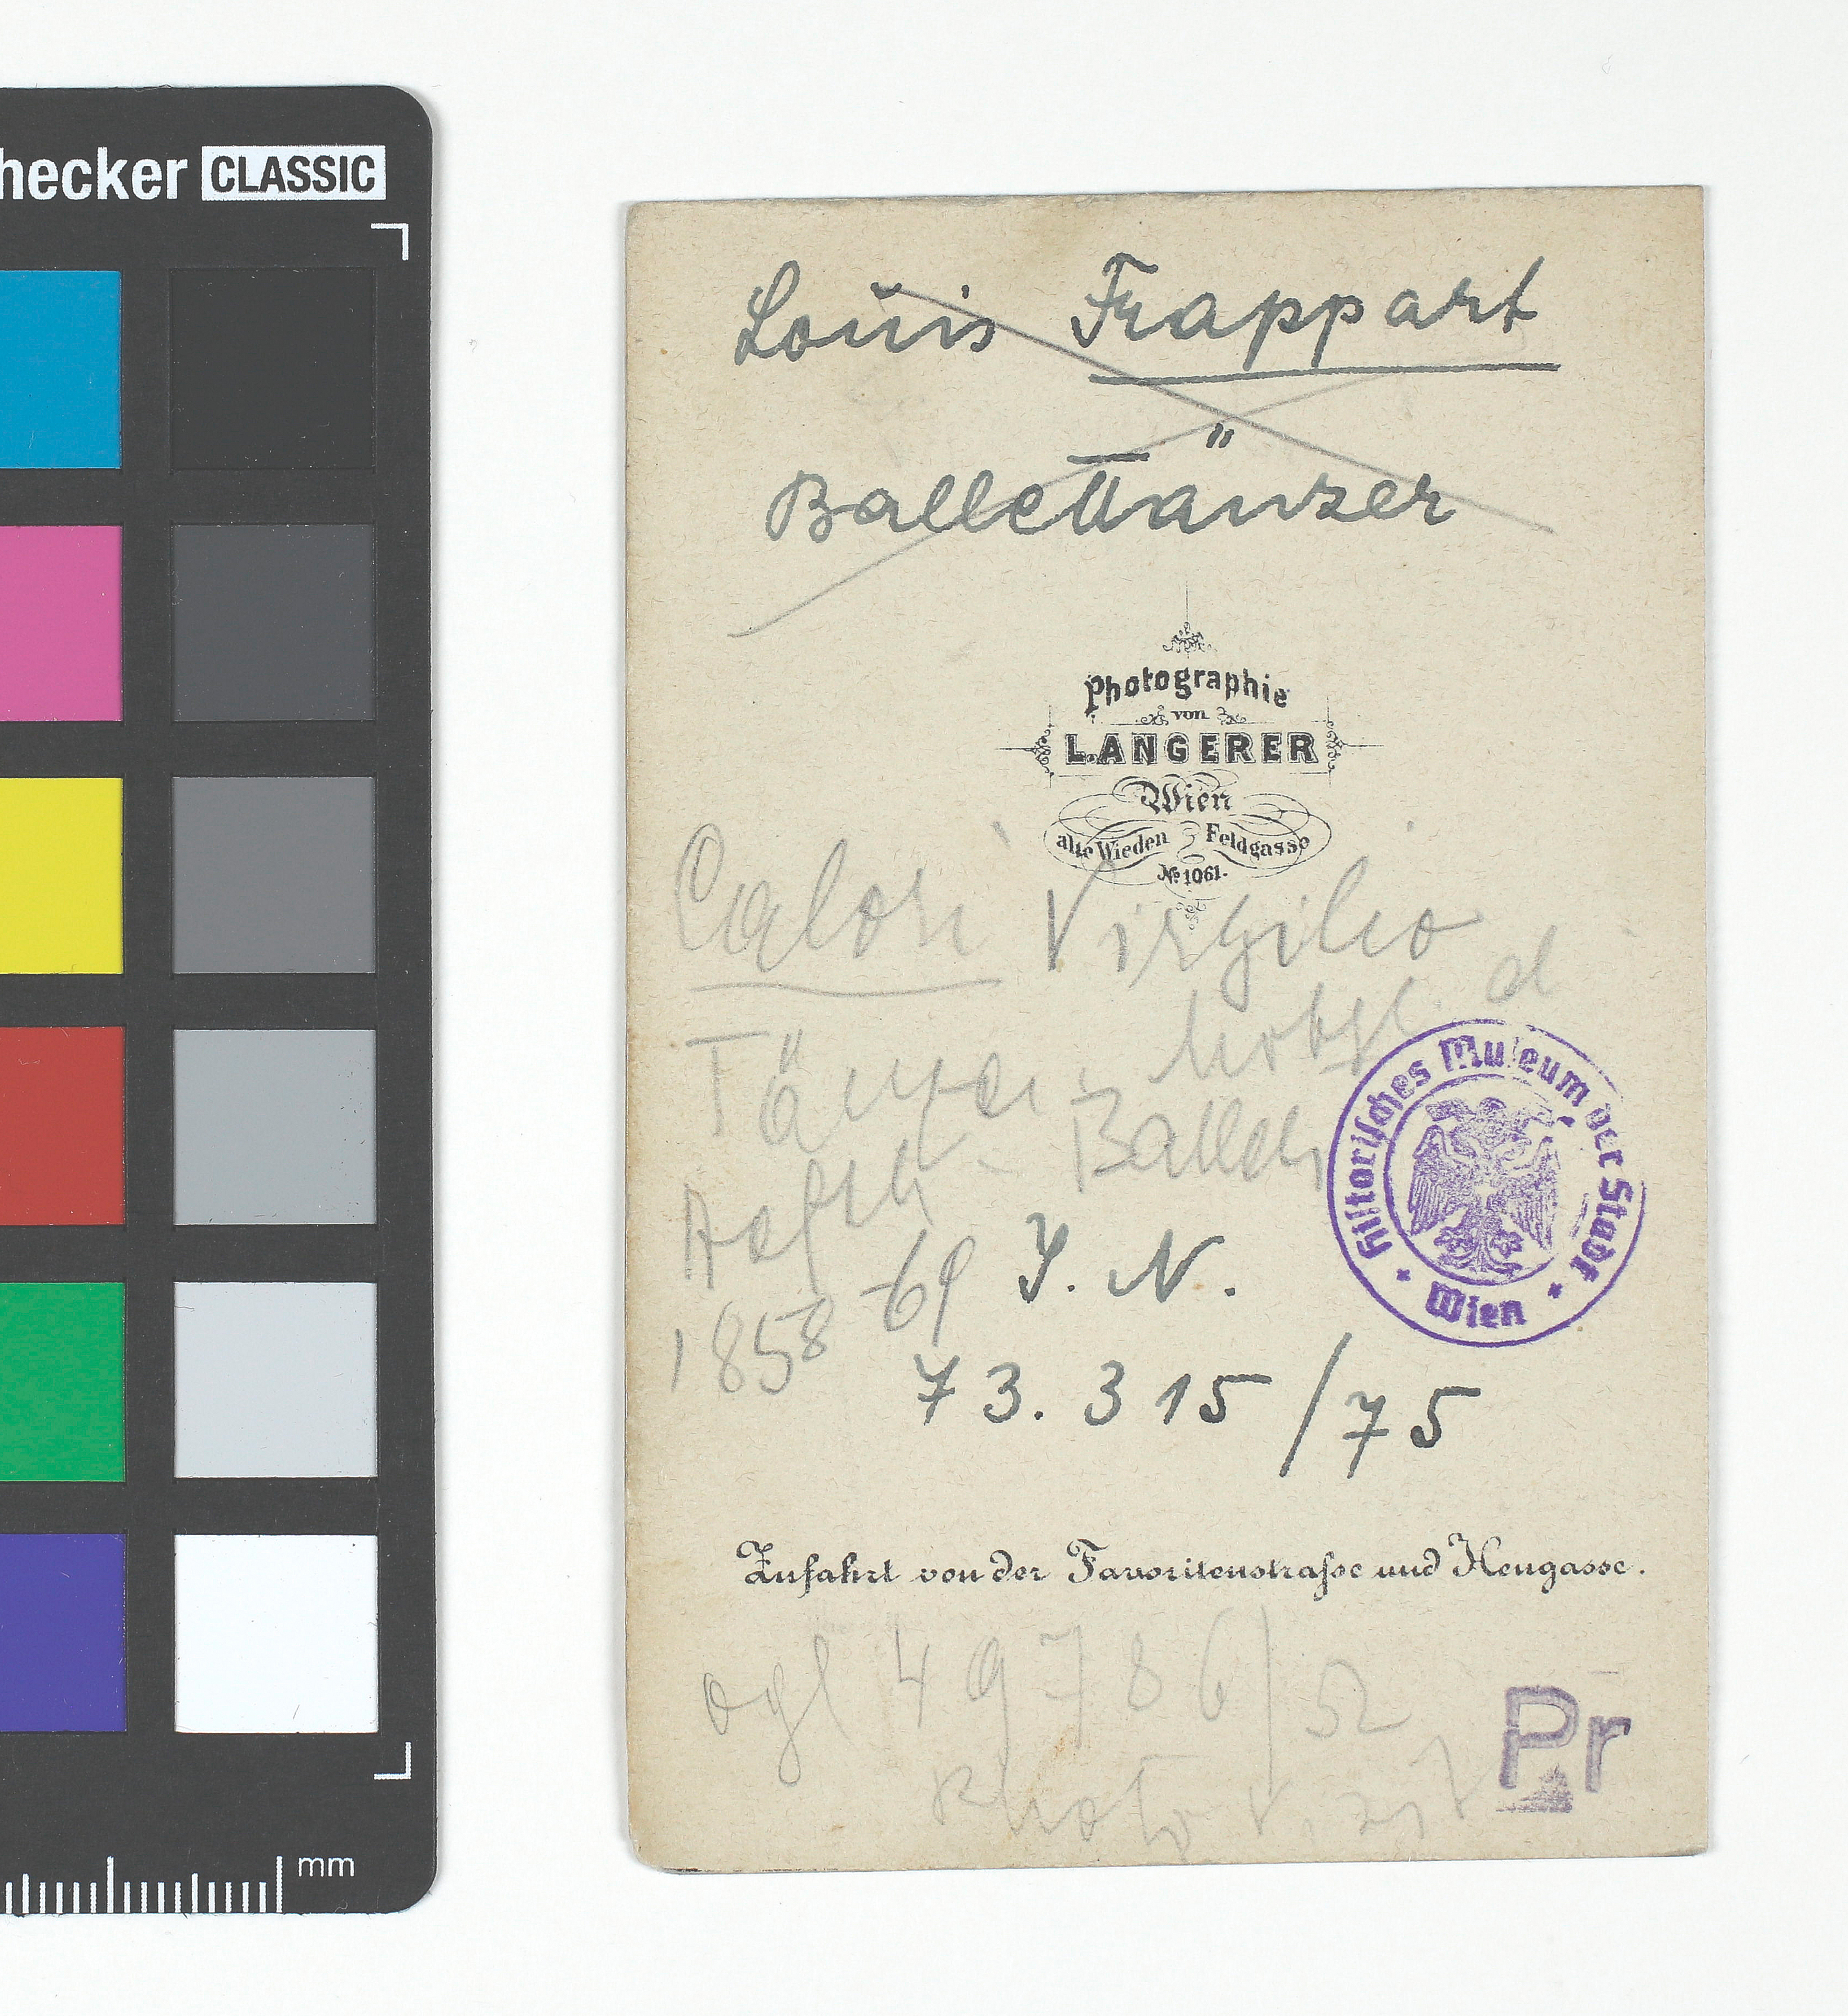 hecker CLASSIC
Louis Frappart
Balletttänzer
Photographie
von
L. ANGERER
Wien
alte Wieden Feldgasse
No 1061.
Calori Virgilio
Tänzer
d
Ballett
1858-69
J. N.
73.315/75
Historisches Museum der Stadt Wien
Zufahrt von der Favoritenstraſse und Heugasse.
ogl 49786/52
Photo
Pr
mm